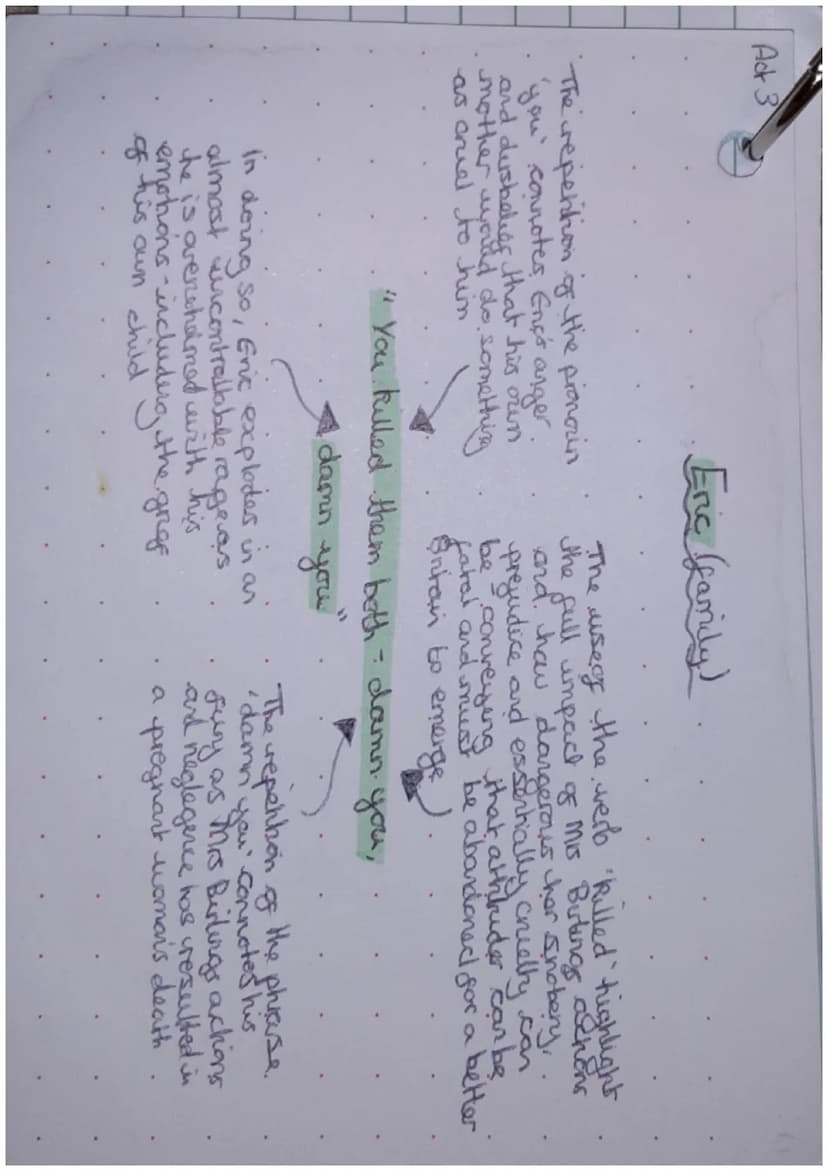 Act 3
Eric (family)
The repetition of the pronoun
'you' connotes Eric's anger
and disbelief that his own
mother would do something
as cruel to him
The use of the verb 'killed' highlight
the full impact of Mrs Birlings actions
and how dangerous her snobery,
prejudice and essentially cruelty can
be conveying that attitudes can be
fatal and must be abandoned for a better
Britain to emerge
"You killed them both - damn you,
damn you"
In doing so, Eric explodes in an
almost uncontrollable rage as
he is overwhelmed with his
emotions - including the grief
of his own child
The repetition of the phrase
'damn you' connotes his
fury as Mrs Birlings actions
and neglegence has resulted in
a pregnant woman's death